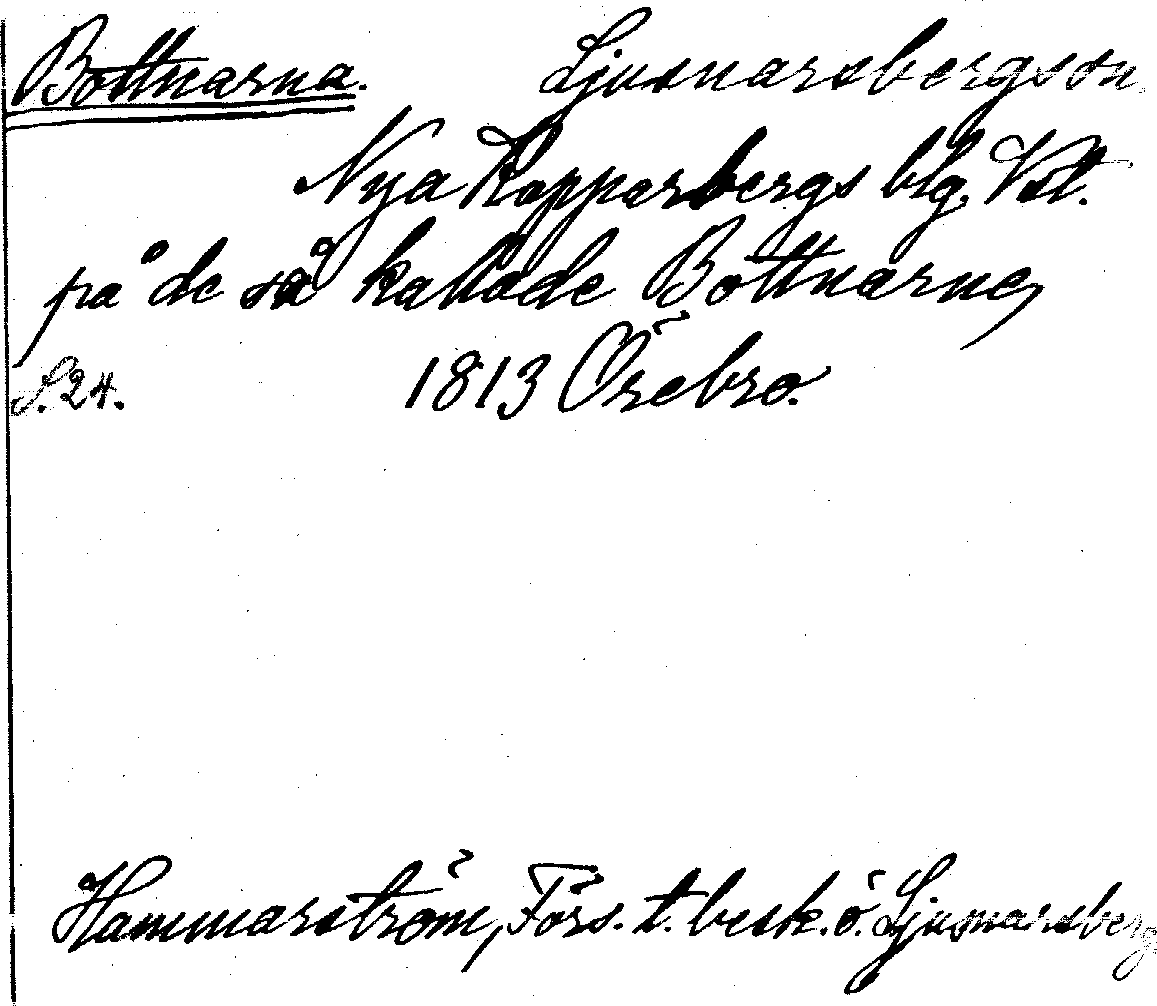 Bottnarna. Ljusnarsbergs sn.
Nya Kopparbergs blg. Vstl.
på de så kallade Bottnarne,
S. 24. 1813 Örebro.
Hammarström, Förs. t. besk. ö. Ljusnarsberg